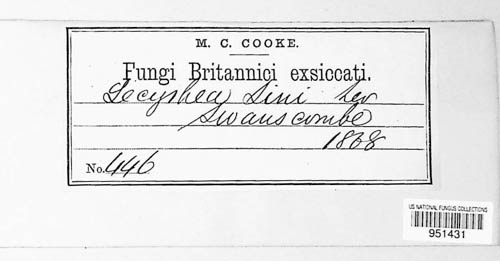 M. C. COOKE.
Fungi Britannici exsiccati.
Lecythea Lini Lev
Swanscombe
1868
No. 446
US NATIONAL FUNGUS COLLECTIONS
951431